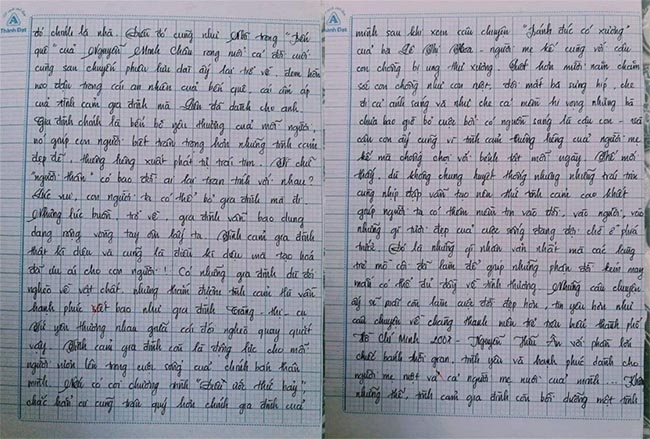 Thành Đạt
đó chính là nhà. Điều đó cũng như Nhĩ trong "Bến
quê" của Nguyễn Minh Châu rong ruổi cả đời cuối
cùng sau chuyến phiêu lưu dài ấy lại trở về, đem hồn
neo đậu trong cái an nhiên của bến quê, cái ấm áp
của tình cảm gia đình mà Liên đã dành cho anh.
Gia đình chính là bến bờ yêu thương của mỗi người,
nó giúp con người biết trân trọng hơn những tình cảm
đẹp đẽ, thương hưng xuất phát từ trái tim. Vì chữ
"người thân" có bao đời ai lại toan tính với nhau?
Lúc vui, con người ta có thể bỏ gia đình mà đi
Nhưng lúc buồn, trở về, gia đình vẫn bao dung
dang rộng vòng tay ôm lấy ta. Tình cảm gia đình
thật kì diệu và cũng là điều kì diệu mà tạo hoá
đã ưu ái cho con người! Có những gia đình dù đói
nghèo về vật chất, nhưng thấm đượm tình cảm thì vẫn
hạnh phúc biết bao như gia đình Tràng - thị - cụ
Tứ yêu thương nhau giữa cái đói nghèo quay quắt
vậy. Tình cảm gia đình còn là động lực cho mỗi
người vươn lên trong cuộc sống của chính bản thân
mình. Nếu có coi chương trình "Điều ước thứ bảy"
chắc hẳn ai cũng trân quý hơn chính gia đình của
Thành Đạt
mình sau khi xem câu chuyện "Bánh đúc có xương"
của bà Lê Thị - người mẹ kế cùng với cậu
con chồng bị ung thư xương. Suốt hơn mười năm chăm
sóc con chồng như con ruột, đôi mắt bà sưng húp, che
đi cả ánh sáng và như che cả niềm hi vọng nhưng bà
chưa bao giờ bỏ cuộc bởi có nguồn sáng là cậu con - và
cậu con ấy cũng vì tình cảm thương hưng của người mẹ
kế mà chống chọi với bệnh tật mỗi ngày. Thế mới
thấy, dù không chung huyết thống nhưng những trái tim
cùng nhịp đập vẫn tạo nên thứ tình cảm cao khiết
giúp người ta có thêm niềm tin vào đời, vào người, vào
những gì tươi đẹp của cuộc sống đang đợi chờ ở phía
trước. Đó là những gì nhân văn nhất mà các
trẻ mồ côi đã làm để giúp những phận đời kém may
mắn có thể đủ đầy về tình thương. Những câu chuyện
ấy sẽ mãi còn làm cuộc đời đẹp hơn, tin yêu hơn như
câu chuyện về chàng thanh niên trẻ tiêu biểu thành phố
Hồ Chí Minh 2007 - Nguyễn Hữu Ân với phân nửa
chiếc bánh thời gian, tình yêu và hạnh phúc dành cho
người mẹ ruột và cả người mẹ nuôi của mình...
những thế, tình cảm gia đình còn bồi dưỡng một tình